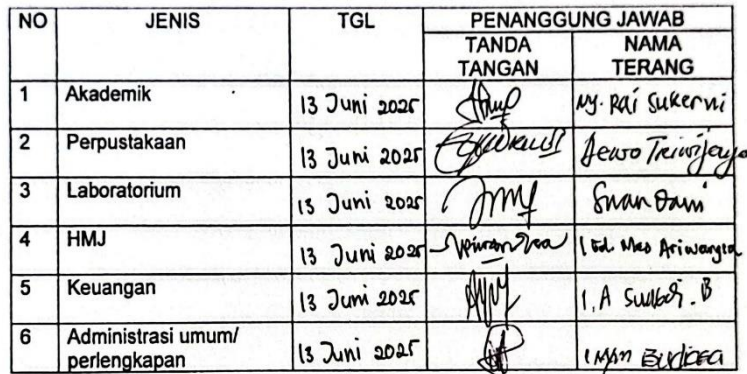 NO JENIS TGL PENANGGUNG JAWAB
TANDA TANGAN NAMA TERANG
1 Akademik 13 Juni 2025 Ny. Rai Sukerni
2 Perpustakaan 13 Juni 2025 Dewo Triwijaya
3 Laboratorium 13 Juni 2025
4 HMJ 13 Juni 2025 Mas Ariwangsa
5 Keuangan 13 Juni 2025 I.A
6 Administrasi umum/
perlengkapan 13 Juni 2025